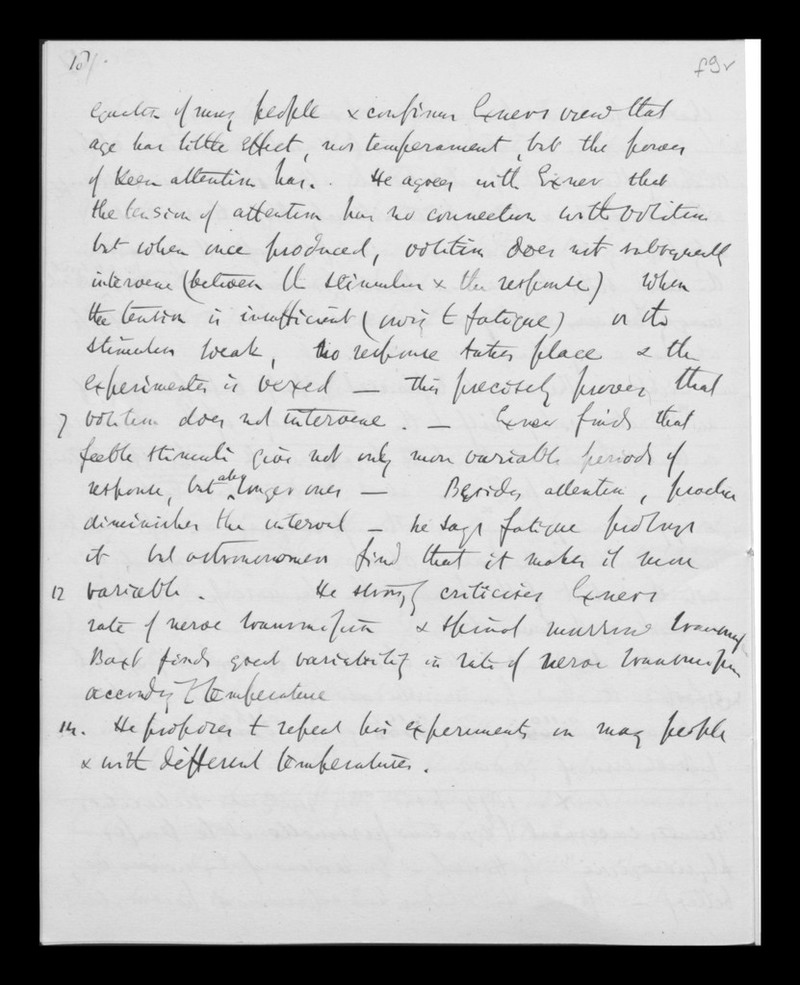 18/. f9v
equation of many people & confirms Exners view that
age has little effect, nor temperament, but the power
of keen attention has. . He agrees with Exner that
the tension of attention has no connection with volition
but when once produced, volition does not subsequently
intervene (between the stimulus & the response) when
the tension is insufficient (owing to fatigue) or the
stimulus weak, no response takes place & the
experimenter is vexed — this precisely proves that
7 volition does not intervene. — Exner finds that
feeble stimuli give not only more variable periods of
response, but also longer ones — Besides attention, practice
diminishes the interval — he says fatigue prolongs
it but astronomers find that it makes it more
12 variable. He strongly criticises Exners
rate of nerve transmission & spinal marrow
Baxt finds great variability in rate of nerve transmission
according to temperature
14. He proposes to repeat his experiments on many people
& with different temperatures.